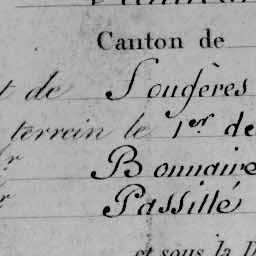 Canton de
t de Sougères
terrein le 1er de
r Bonnaire
r Passillé
et sous la